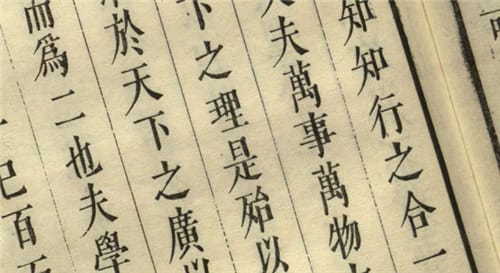 知知行之合一
矣夫萬事萬物
下之理是殆以
求於天下之廣以
而爲二也夫學
一己百